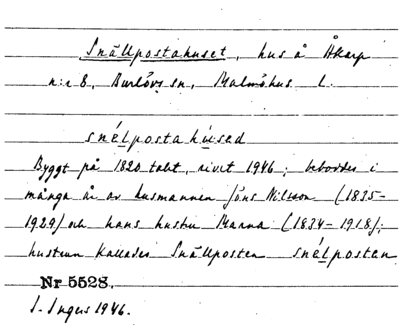 Snällpostahuset, hus å Åkarp
n:r 8, Burlövs sn, Malmöhus l.
snélpostahúsed
Byggt på 1820 talet, rivet 1946; beboddes i
många år av husmannen Jöns Nilsson (1835-
1929) och hans hustru Marna (1834-1918);
hustrun kallades Snällposten snélpostan
Nr 5528.
I. Ingers 1946.